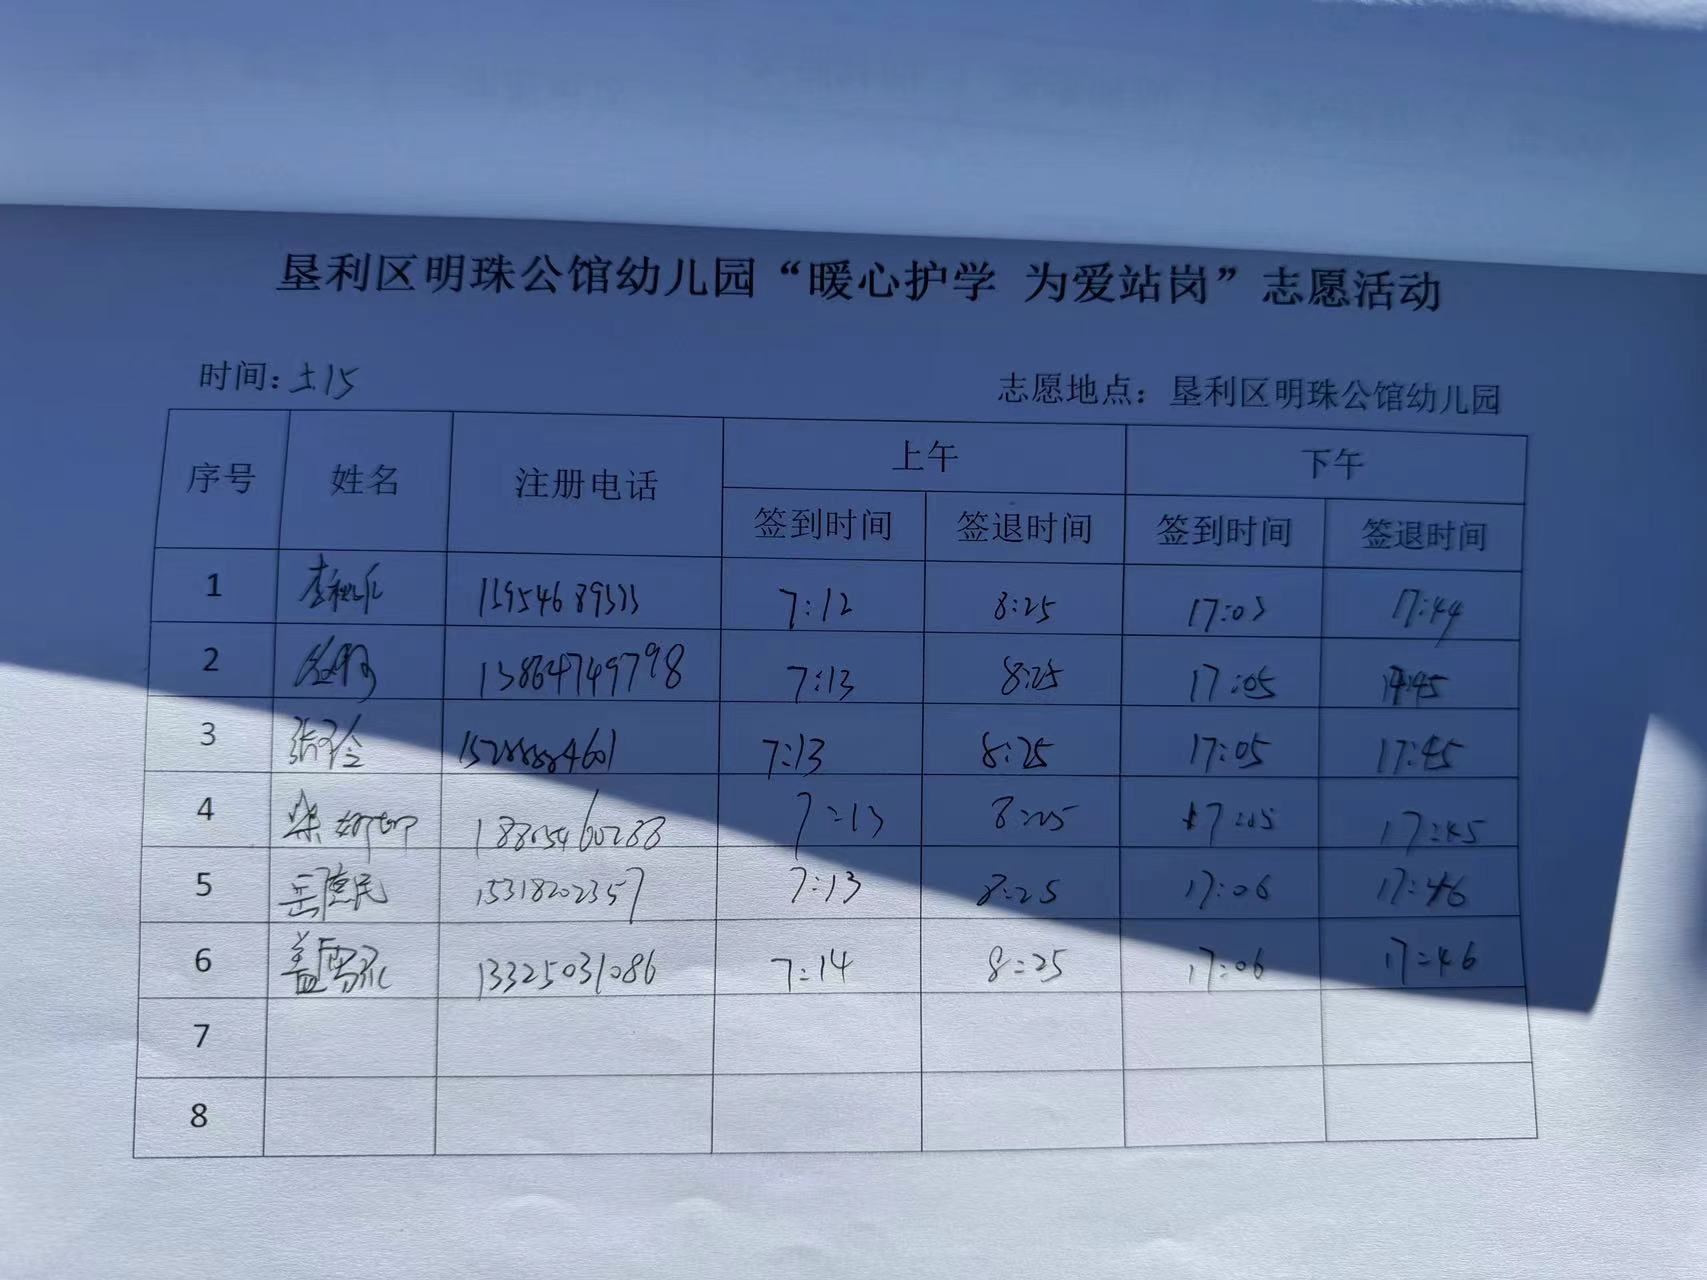 垦利区明珠公馆幼儿园“暖心护学 为爱站岗”志愿活动
时间: 志愿地点：垦利区明珠公馆幼儿园
序号 姓名 注册电话 上午 下午
签到时间 签退时间 签到时间 签退时间
1 7:12 8:25 17:03 17:44
2 13864749798 7:13 8:25 17:05 17:45
3 7:13 8:25 17:05 17:45
4 7:13 8:25 17:05 17:45
5 岳惠民 15318202357 7:13 8:25 17:06 17:46
6 13325031086 7:14 8:25 17:06 17:46
7
8